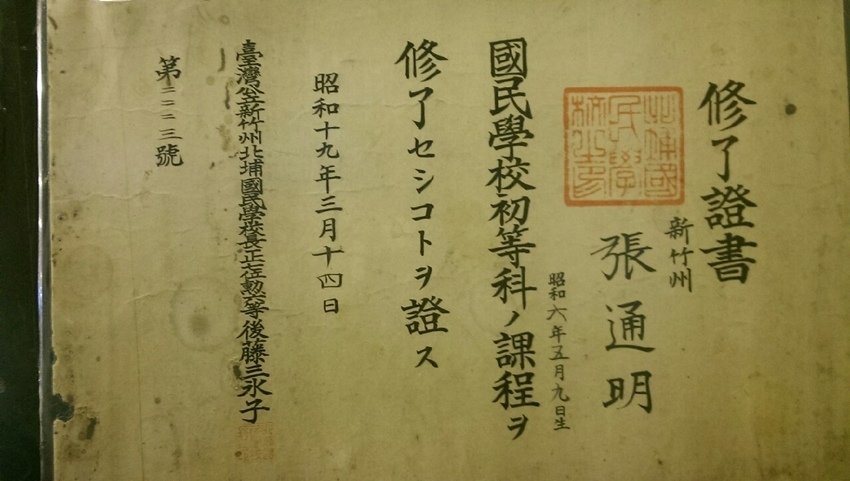 修了證書
新竹州
張通明
昭和六年五月九日生
國民學校初等科ノ課程ヲ
修了セシコトヲ證ス
昭和十九年三月十四日
臺灣公立新竹州北埔國民學校長正七位勲六等後藤三永子
第二二二三號